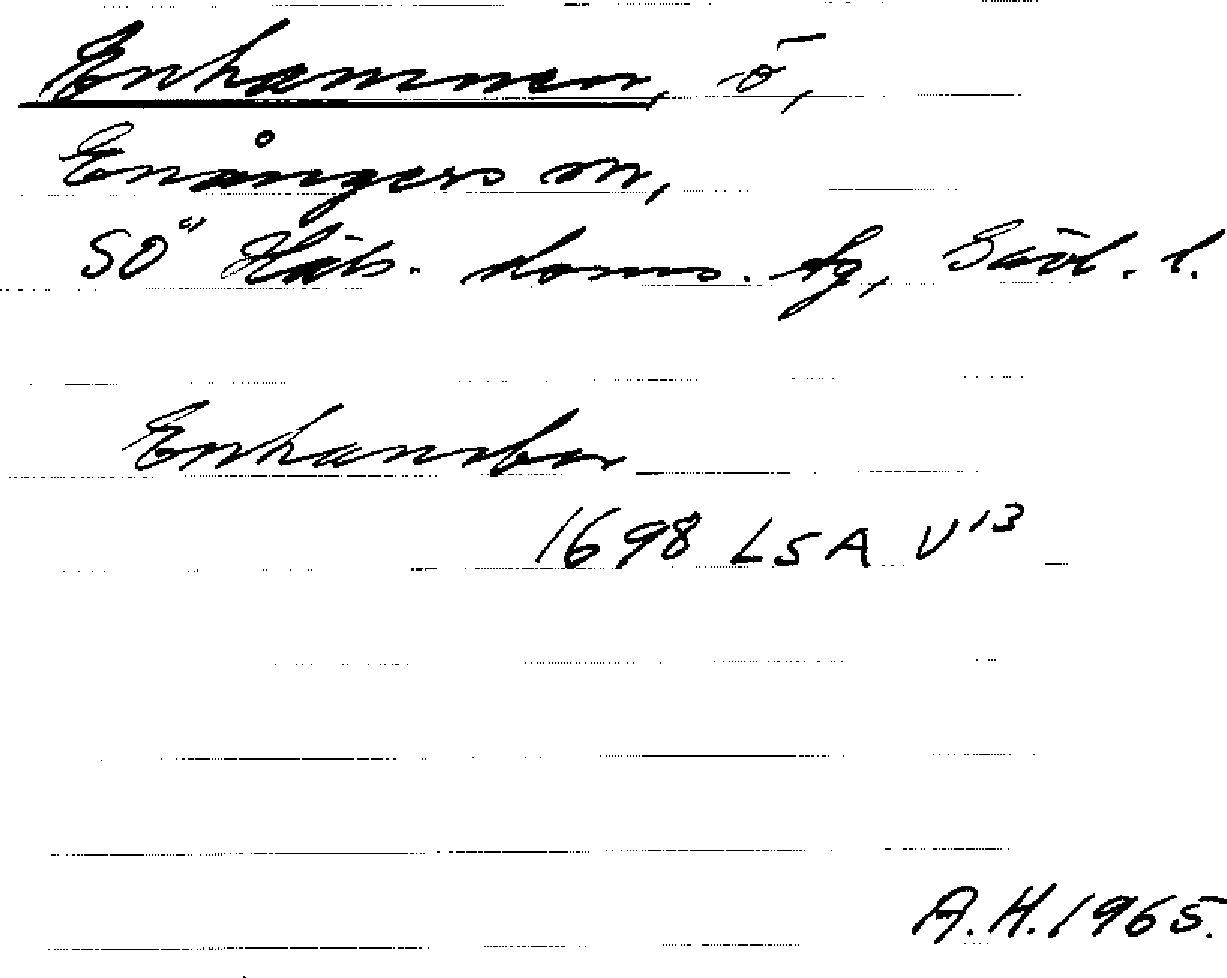 Enhammen, ö,
Enångers sn,
SÖ Häls. doms. tg, Gävl. l.
Enhamden
1698 LSA V13
A.H. 1965.